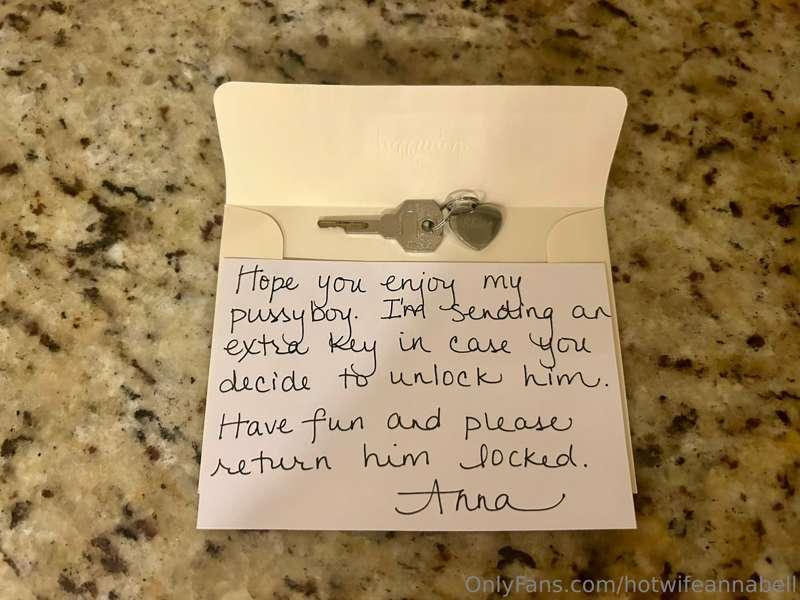 Hope you enjoy my
pussyboy. I'm sending an
extra key in case you
decide to unlock him.
Have fun and please
return him locked.
Anna
OnlyFans.com/hotwifeannabell